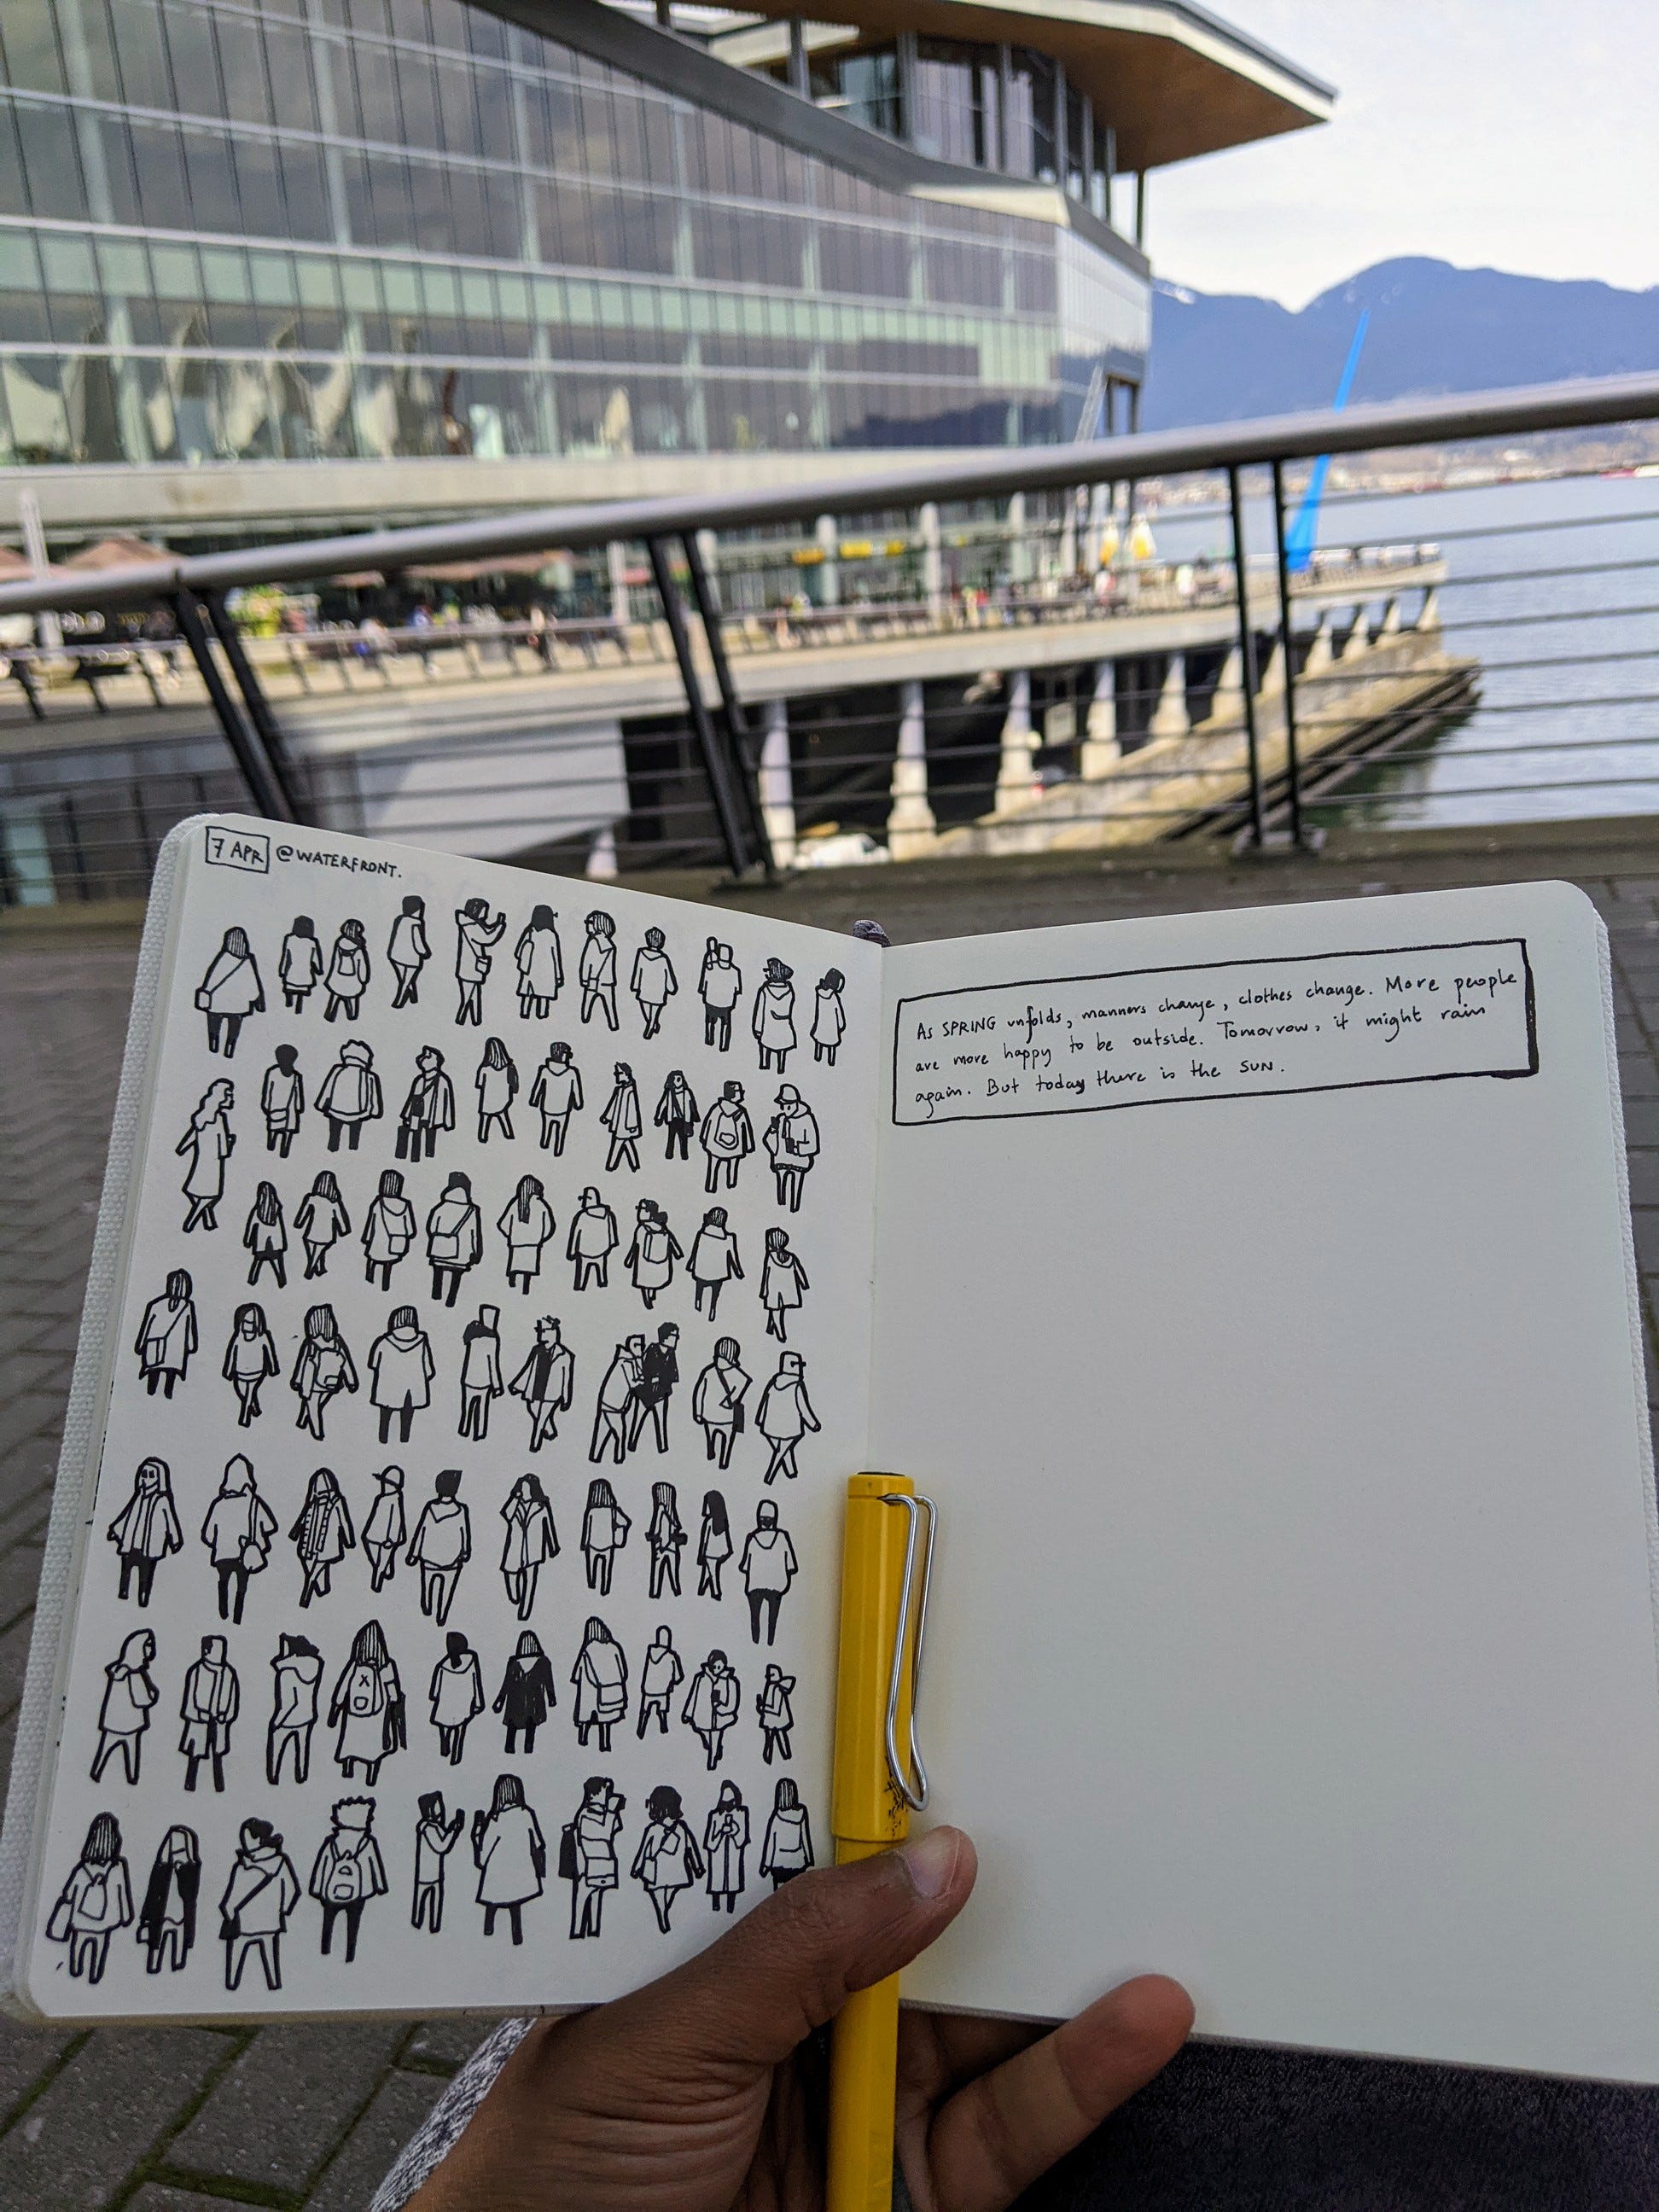 7 APR @WATERFRONT.
As SPRING unfolds, manners change, clothes change. More people
are more happy to be outside. Tomorrow, it might rain
again. But today there is the SUN.